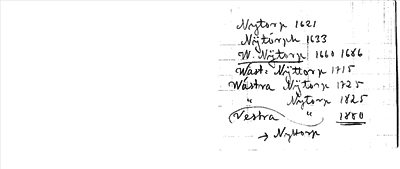 Nytorp 1621
Nÿtorph 1633
W. Nÿtorp 1660 1686
Wäst: Nÿttorp 1715
Wästra Nÿtorp 1725
" Nytorp 1825
Vestra " 1880
→ Nyttorp